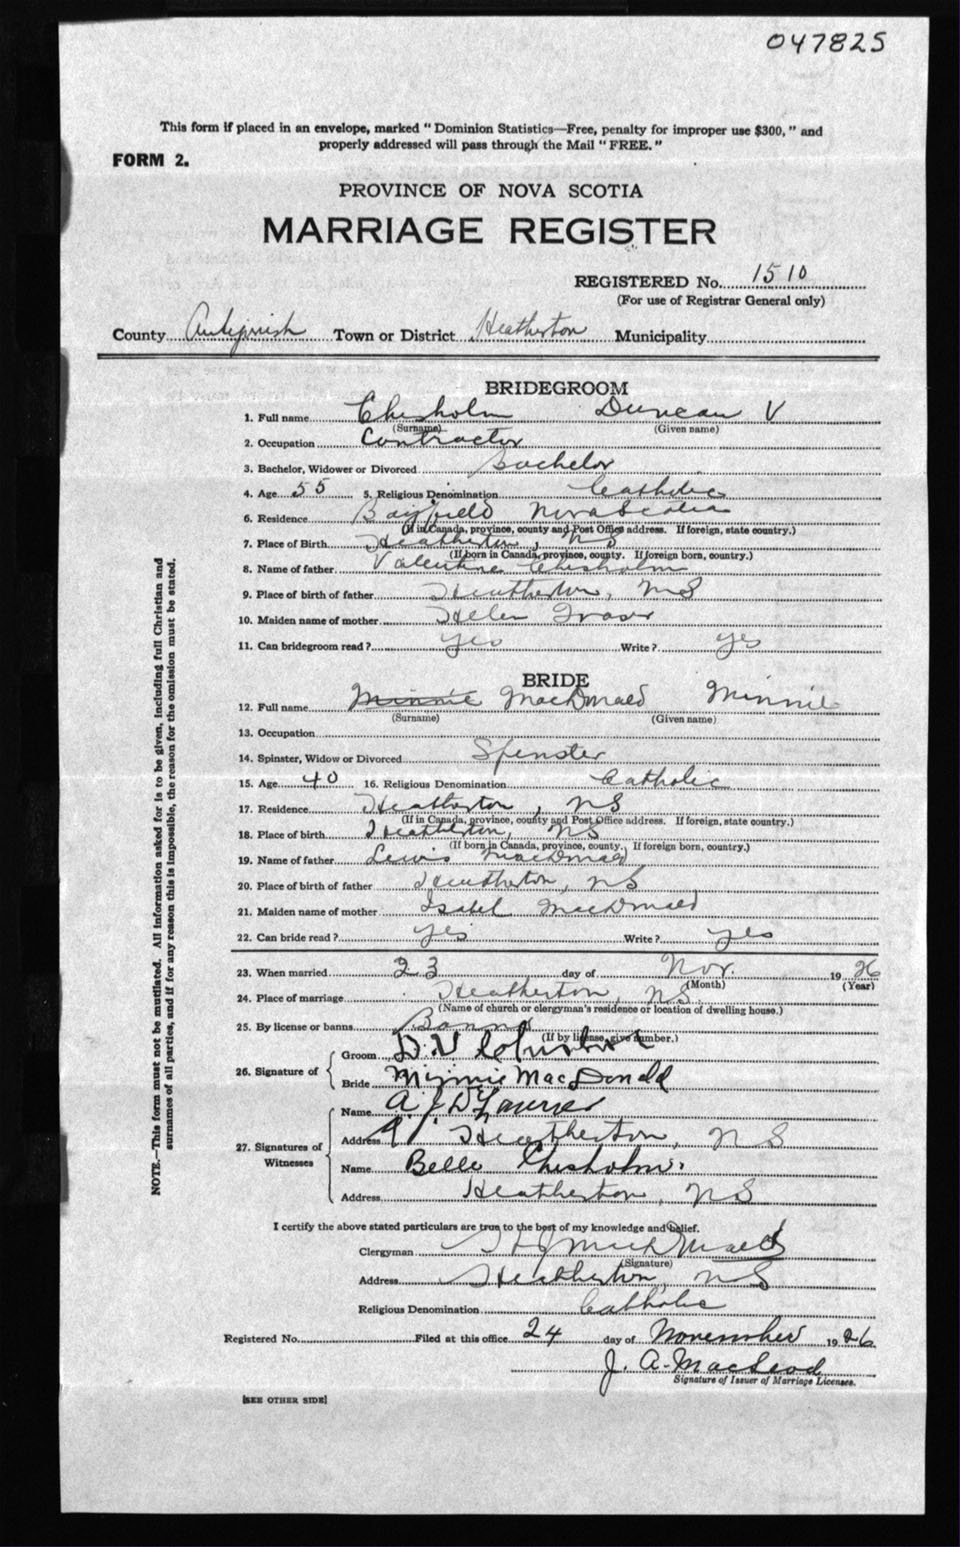 047825
This form if placed in an envelope, marked "Dominion Statistics—Free, penalty for improper use $300," and
properly addressed will pass through the Mail "FREE."
FORM 2.
PROVINCE OF NOVA SCOTIA
MARRIAGE REGISTER
REGISTERED No. 1510
(For use of Registrar General only)
County Antigonish Town or District Heatherton Municipality
BRIDEGROOM
1. Full name Chisholm Duncan V
(Surname) (Given name)
2. Occupation Contractor
3. Bachelor, Widower or Divorced Bachelor
4. Age 55 5. Religious Denomination Catholic
6. Residence Bayfield Nova Scotia
(If in Canada, province, county and Post Office address. If foreign, state country.)
7. Place of Birth Heatherton, NS
(If born in Canada, province, county. If foreign born, country.)
8. Name of father Valentine Chisholm
9. Place of birth of father Heatherton, NS
10. Maiden name of mother Helen Fraser
11. Can bridegroom read? yes Write? yes
BRIDE
12. Full name Minnie MacDonald Minnie
(Surname) (Given name)
13. Occupation
14. Spinster, Widow or Divorced Spinster
15. Age 40 16. Religious Denomination Catholic
17. Residence Heatherton, NS
(If in Canada, province, county and Post Office address. If foreign, state country.)
18. Place of birth Heatherton, NS
(If born in Canada, province, county. If foreign born, country.)
19. Name of father Lewis MacDonald
20. Place of birth of father Heatherton, NS
21. Maiden name of mother Isabel MacDonald
22. Can bride read? yes Write? yes
23. When married 23 day of Nov. 1926
(Month) (Year)
24. Place of marriage Heatherton, NS
(Name of church or clergyman's residence or location of dwelling house.)
25. By license or banns Banns
(If by license, give number.)
26. Signature of
Groom D. V. Chisholm
Bride Minnie MacDonald
27. Signatures of Witnesses
Name A. J. D.
Address Heatherton, NS
Name Belle Chisholm.
Address Heatherton, NS
I certify the above stated particulars are true to the best of my knowledge and belief.
Clergyman MacDonald
(Signature)
Address Heatherton, NS
Religious Denomination Catholic
Registered No. Filed at this office 24 day of November 1926
J. A. MacLeod
Signature of Issuer of Marriage Licenses.
[SEE OTHER SIDE]
NOTE.—This form must not be mutilated. All information asked for is to be given, including full Christian and
surnames of all parties, and if for any reason this is impossible, the reason for the omission must be stated.